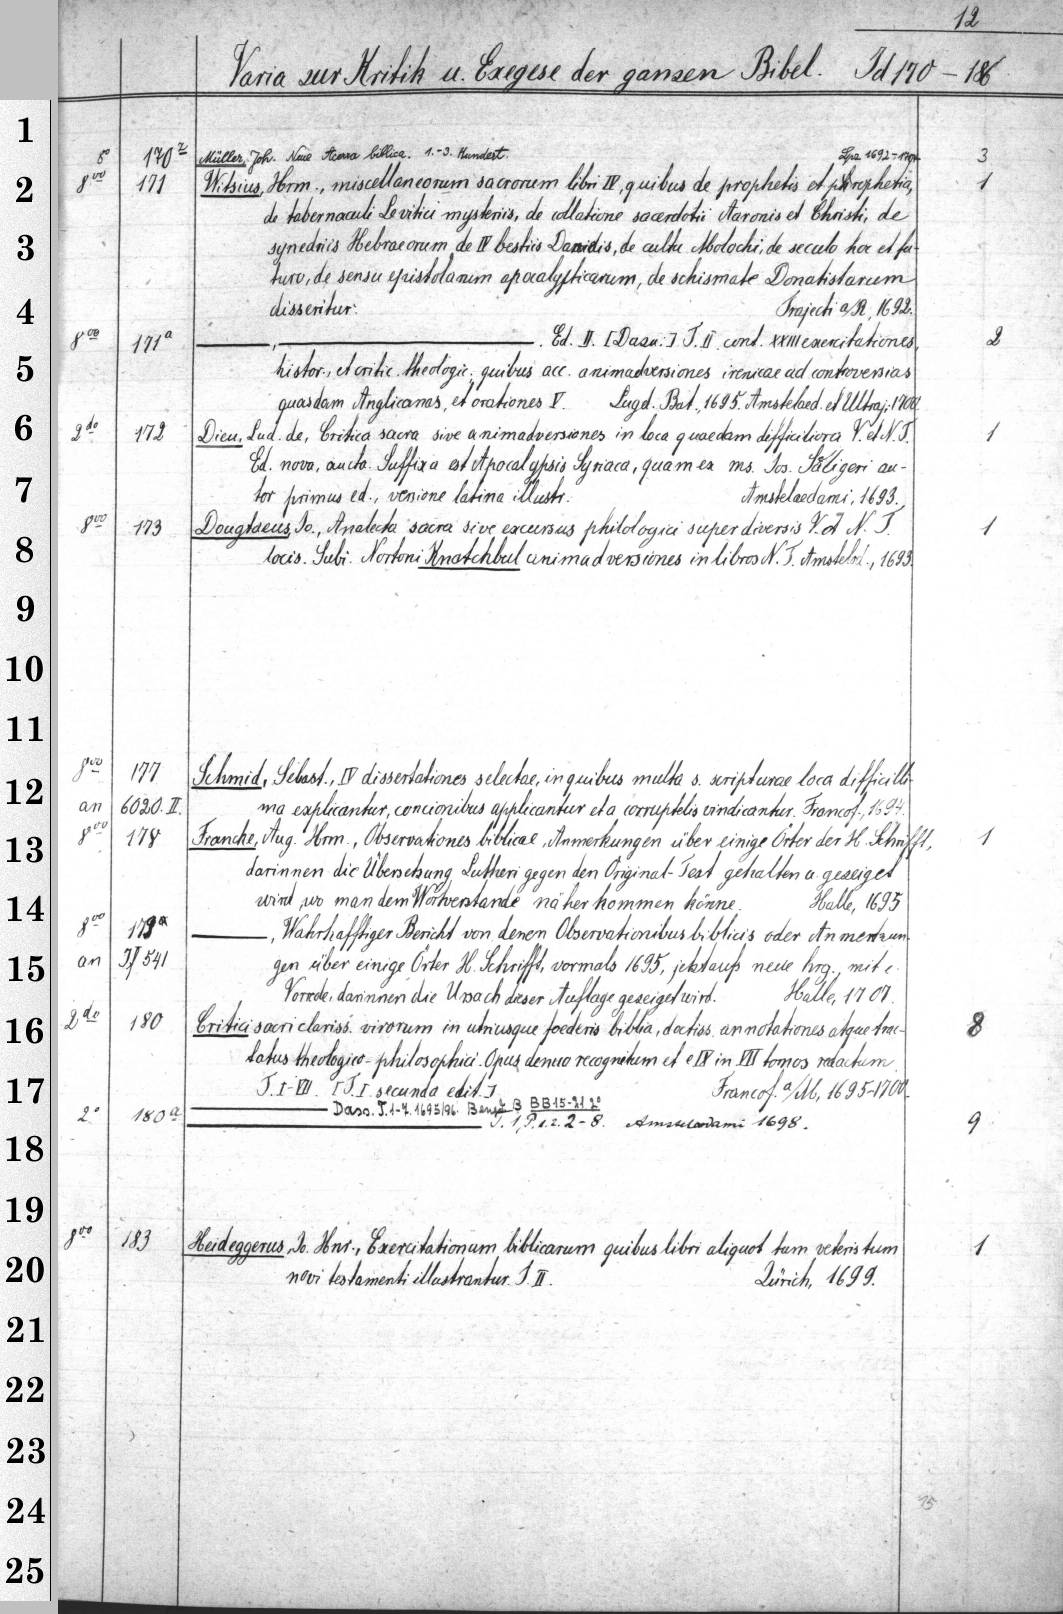 12
Varia zur Kritik u. Exegese der ganzen Bibel. Id 170 - 186
1
8° 170 z Müller, Joh. Neue Acerra biblica. 1.-3. Hundert. Lpz 1692- 3
2 8vo 171 Witsius, Hrm., miscellaneorum sacrorum libri IV, quibus de prophetis et prophetia, 1
de tabernaculi Levitici mysteriis, de collatione sacerdotii Aaronis et Christi, de
3 synedriis Hebraeorum, de IV bestiis Danielis, de cultu Molochi, de seculo hoc et fu-
turo, de sensu epistolarum apocalypticarum, de schismate Donatistarum
4 disseritur. Trajecti a/R, 1692.
8vo 171a ———, ———. Ed. II. [Dass.] T. II cont. XXIII exercitationes, 2
5 histor., et critic. theologic., quibus acc. animadversiones irenicae ad controversias
quasdam Anglicanas, et orationes V. Lugd. Bat., 1695. Amstelaed. et Ultraj. 1700
6 2do 172 Dieu, Lud. de, Critica sacra sive animadversiones in loca quaedam difficiliora V. et N. T. 1
Ed. nova, aucta. Suffixa est Apocalypsis Syriaca, quam ex ms. Jos. Scaligeri au-
7 tor primus ed., versione latina illustr. Amstelaedami, 1693.
8vo 173 Dougtaeus, Jo., Analecta sacra sive excursus philologici super diversis V. et N. T. 1
8 locis. Subj. Nortoni Knatchbul animadversiones in libros N. T. Amstelod., 1693.
9
10
11
8vo 177 Schmid, Sebast., IV dissertationes selectae, in quibus multa s. scripturae loca difficilli-
12 an 6020. II. ma explicantur, concionibus applicantur et a corruptelis vindicantur. Francof., 1694.
13 8vo 178 Francke, Aug. Hrm., Observationes biblicae, Anmerkungen über einige Örter der H. Schrifft, 1
darinnen die Übersetzung Lutheri gegen den Original-Text gehalten u. gezeiget
14 wird, wo man dem Wortverstande näher kommen könne. Halle, 1695
8vo 179a ———, Wahrhafftiger Bericht von denen Observationibus biblicis oder Anmerkun-
15 an If 541 gen über einige Örter H. Schrifft, vormals 1695, jetzt aufs neue hrg., mit e.
Vorrede, darinnen die Ursach dieser Auflage gezeiget wird. Halle, 1707.
16 2do 180 Critici sacri clariss. virorum in utriusque foederis biblia, doctiss. annotationes atque trac- 8
tatus theologico-philosophici. Opus denuo recognitum et e IX in VII tomos redactum
17 T. I-VII. [T. I secunda edit.] Francof. a/M, 1695-1700.
——— Dass. T. 1-7. 1695/96. B BB 15-21 2°
2° 180a ——— T. 1, P. 1. 2. 2-8. Amstelaedami 1698. 9
18
19
8vo 183 Heideggerus, Jo. Hnr., Exercitationum biblicarum quibus libri aliquot tum veteris tum 1
20 novi testamenti illustrantur. T. II. Zürich, 1699.
21
22
23
24
25